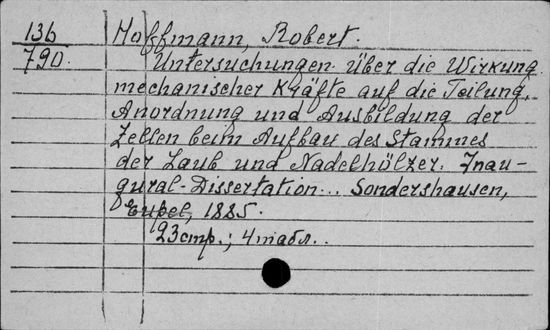 136 Hoffmann, Robert.
790. Untersuchungen über die Wirkung
mechanischer Kräfte auf die Teilung,
Anordnung und Ausbildung der
Zellen beim Aufbau des Stammes
der Laub und Nadelhölzer. Inau-
gural-Dissertation... Sondershausen,
Eupel, 1885.
23стр.; 4табл..